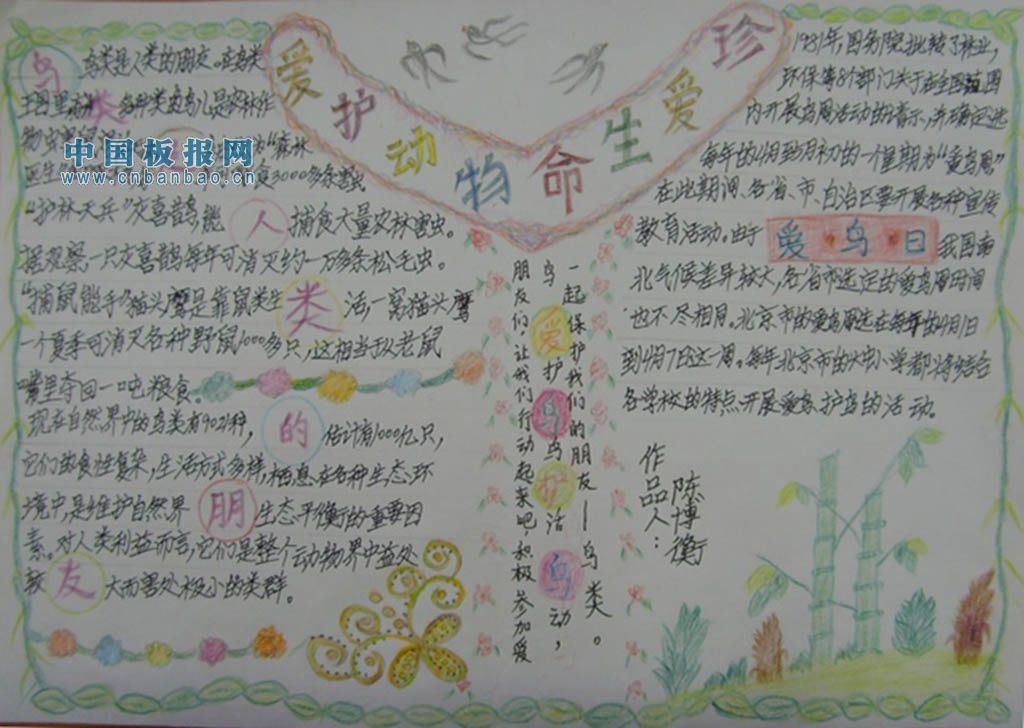 爱护动物命生爱珍
鸟 鸟类是人类的朋友。在鸟类
类
医生"
中国板报网
www.cnbanbao.cn
3000多条害虫。
"护林天兵"灰喜鹊,能 人 捕食大量农林害虫。
据观察一只灰喜鹊每年可消灭约一万多条松毛虫。
"捕鼠能手"猫头鹰是靠鼠类生 类 活,一窝猫头鹰
一个夏季可消灭各种野鼠1000多只,这相当于从老鼠
嘴里夺回一吨粮食。
现在自然界中的鸟类有9021种, 的 估计有1000亿只,
它们的食性复杂,生活方式多样,栖息在各种生态环
境中,是维护自然界 朋 生态平衡的重要因
素。对人类利益而言,它们是整个动物界中益处
较 友 大而害处极小的类群。
一起保护我们的朋友—鸟类。
鸟 爱护鸟鸟护活鸟动,
朋友们让我们行动起来吧,和极参加爱
1981年,国务院批转了林业,
环保等8个部门关于在全国范围
内开展鸟周活动的请示,并确定选
每年的4月到5月初的一个星期为"爱鸟周"
在此期间、各省、市、自治区要开展各种宣传
教育活动。由于 爱鸟日 我国南
北气候差异较大,各省市选定的爱鸟周时间
也不尽相同。北京市的爱鸟周选在每年的4月1日
到4月7日这一周。每年北京市的大中小学都将结合
各学校的特点开展爱鸟、护鸟的活动。
作品人:
陈博衡